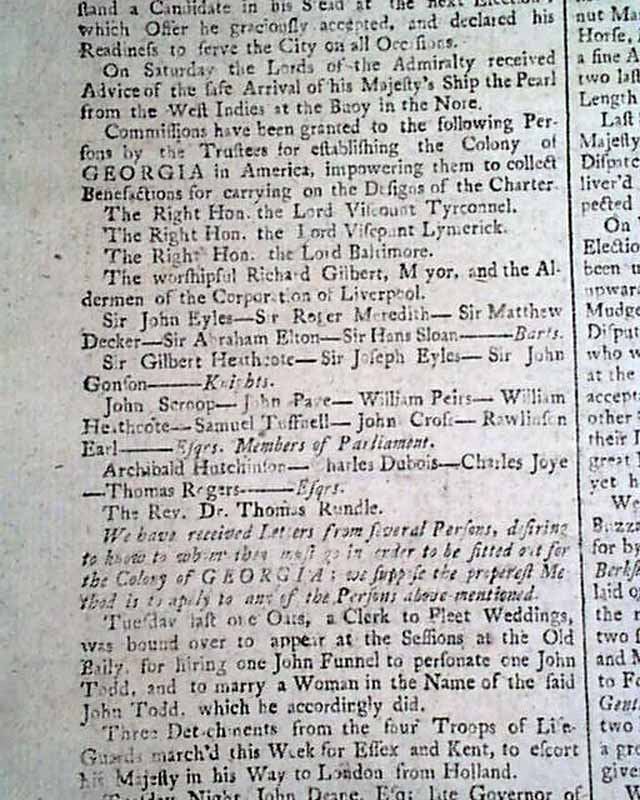 ſtand a Candidate in his Stead at the next Election;
which Offer he graciouſly accepted, and declared his
Readineſs to ſerve the City on all Occaſions.
On Saturday the Lords of the Admiralty received
Advice of the ſafe Arrival of his Majeſty's Ship the Pearl
from the Weſt Indies at the Buoy in the Nore.
Commiſſions have been granted to the following Per-
ſons by the Truſtees for eſtabliſhing the Colony of
GEORGIA in America, impowering them to collect
Benefactions for carrying on the Deſigns of the Charter.
The Right Hon. the Lord Viſcount Tyrconnel.
The Right Hon. the Lord Viſcount Lymerick.
The Right Hon. the Lord Baltimore.
The worſhipful Richard Gilbert, Mayor, and the Al-
dermen of the Corporation of Liverpool.
Sir John Eyles—Sir Roger Meredith— Sir Matthew
Decker—Sir Abraham Elton—Sir Hans Sloan——Barts.
Sir Gilbert Heathcote— Sir Joſeph Eyles— Sir John
Gonſon——Knights.
John Scroop— John Page— William Peirs— William
Heathcote—Samuel Tuffnell— John Croſs— Rawlinſon
Earl——Eſqrs. Members of Parliament.
Archibald Hutchinſon—Charles Dubois—Charles Joye
—Thomas Rogers——Eſqrs.
The Rev. Dr. Thomas Rundle.
We have received Letters from ſeveral Perſons, deſiring
to know to whom they muſt go in order to be fitted out for
the Colony of GEORGIA; we ſuppoſe the propereſt Me
thod is to apply to any of the Perſons above-mentioned.
Tueſday laſt one Oats, a Clerk to Fleet Weddings,
was bound over to appear at the Seſſions at the Old
Baily, for hiring one John Funnel to perſonate one John
Todd, and to marry a Woman in the Name of the ſaid
John Todd, which he accordingly did.
Three Detachments from the four Troops of Life-
Guards march'd this Week for Eſſex and Kent, to eſcort
his Majeſty in his Way to London from Holland.
Tueſday Night John Deane, Eſq; late Governor of
nut Ma
Horſe,
a fine A
two laſt
Length
Laſt
Majeſty
Diſpatc
liver'd
pected
On
Electio
been u
upwar
Mudge
Diſput
who w
at the
accept
other
their I
great
yet h
We
Buzza
for by
Berkſ
laid o
the r
two ſ
and M
to Fo
Gent
two
a gre
give